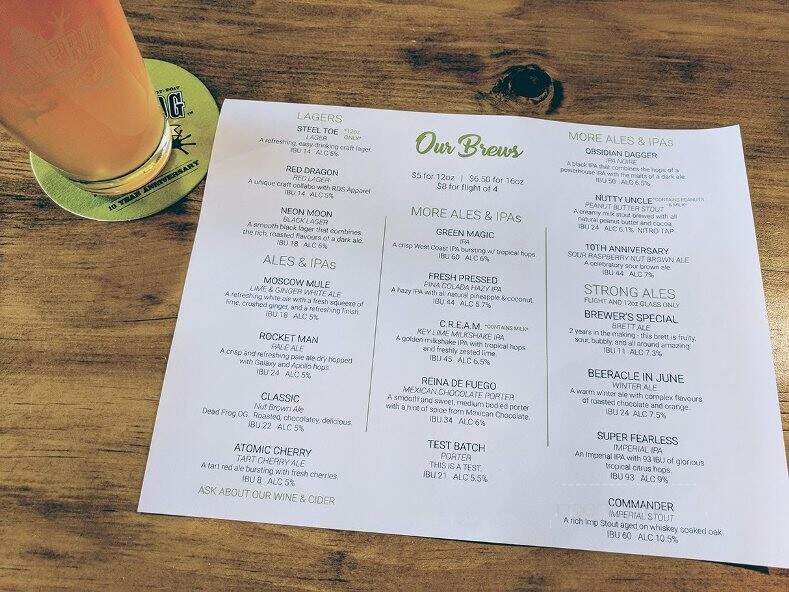 LAGERS
STEEL TOE *12oz ONLY*
LAGER
A refreshing, easy drinking craft lager.
IBU 14 ALC 5%
RED DRAGON
RED LAGER
A unique craft collabo with RDS Apparel
IBU 14 ALC 5%
NEON MOON
BLACK LAGER
A smooth black lager that combines
the rich, roasted flavours of a dark ale.
IBU 18 ALC 6%
ALES & IPAs
MOSCOW MULE
LIME & GINGER WHITE ALE
A refreshing white ale with a fresh squeeze of
lime, crushed ginger, and a refreshing finish.
IBU 18 ALC 5%
ROCKET MAN
PALE ALE
A crisp and refreshing pale ale dry hopped
with Galaxy and Apollo hops.
IBU 24 ALC 5%
CLASSIC
Nut Brown Ale
Dead Frog OG. Roasted, chocolatey, delicious.
IBU 22 ALC 5%
ATOMIC CHERRY
TART CHERRY ALE
A tart red ale bursting with fresh cherries.
IBU 8 ALC 5%
ASK ABOUT OUR WINE & CIDER
Our Brews
$5 for 12oz | $6.50 for 16oz
$8 for flight of 4
MORE ALES & IPAs
GREEN MAGIC
IPA
A crisp West Coast IPA bursting w/ tropical hops.
IBU 60 ALC 6%
FRESH PRESSED
PINA COLADA HAZY IPA
A hazy IPA with all natural pineapple & coconut.
IBU 44 ALC 5.7%
C.R.E.A.M. *CONTAINS MILK*
KEY LIME MILKSHAKE IPA
A golden milkshake IPA with tropical hops
and freshly zested lime.
IBU 45 ALC 6.5%
REINA DE FUEGO
MEXICAN CHOCOLATE PORTER
A smooth and sweet, medium bodied porter
with a hint of spice from Mexican Chocolate.
IBU 34 ALC 6%
TEST BATCH
PORTER
THIS IS A TEST.
IBU 21 ALC 5.5%
MORE ALES & IPAs
OBSIDIAN DAGGER
IPA NOIRE
A black IPA that combines the hops of a
powerhouse IPA with the malts of a dark ale.
IBU 50 ALC 6.5%
NUTTY UNCLE *CONTAINS PEANUTS & MILK*
PEANUT BUTTER STOUT
A creamy milk stout brewed with all
natural peanut butter and cocoa.
IBU 24 ALC 6.1% NITRO TAP
10TH ANNIVERSARY
SOUR RASPBERRY NUT BROWN ALE
A celebratory sour brown ale.
IBU 44 ALC 7%
STRONG ALES
FLIGHT AND 12oz GLASS ONLY
BREWER'S SPECIAL
BRETT ALE
2 years in the making - this brett is fruity,
sour, bubbly, and all around amazing.
IBU 11 ALC 7.3%
BEERACLE IN JUNE
WINTER ALE
A warm winter ale with complex flavours
of roasted chocolate and orange.
IBU 24 ALC 7.5%
SUPER FEARLESS
IMPERIAL IPA
An Imperial IPA with 93 IBU of glorious
tropical citrus hops.
IBU 93 ALC 9%
COMMANDER
IMPERIAL STOUT
A rich Imp Stout aged on whiskey soaked oak.
IBU 60 ALC 10.5%
10 YEAR ANNIVERSARY